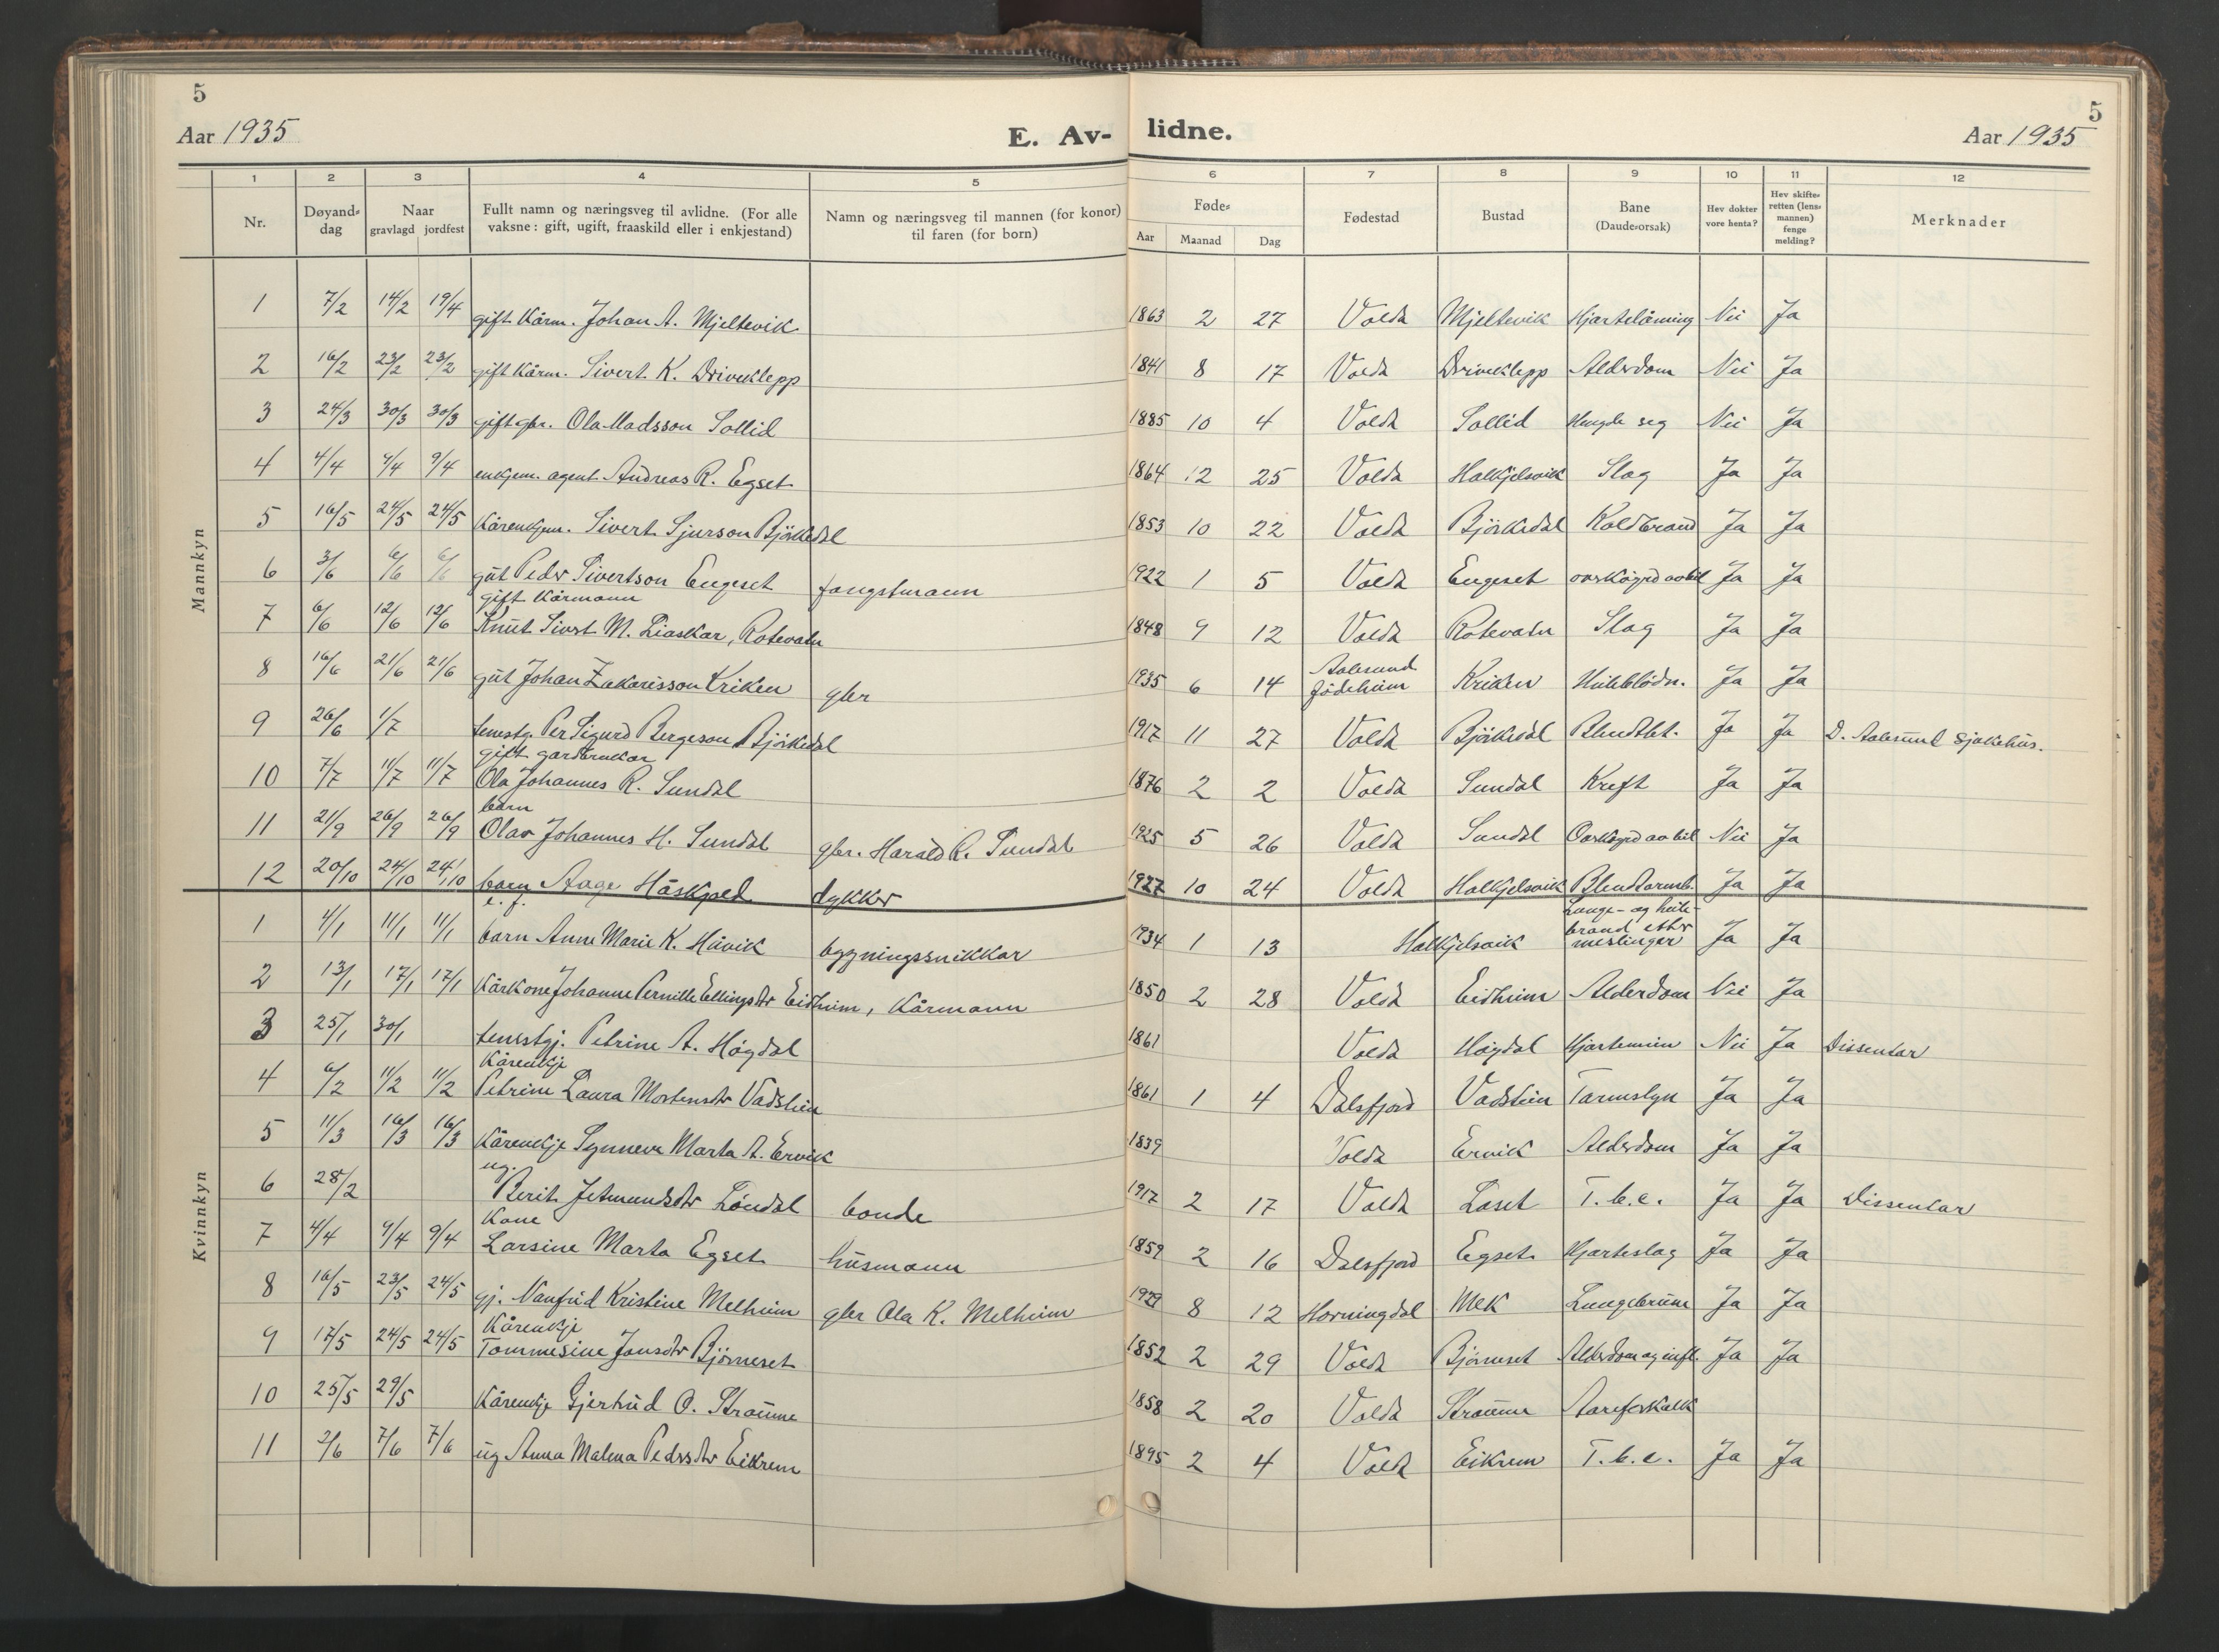 5
5
Aar 1935
E. Av-
lidne.
Aar 1935
1 2 3 4 5 6 7 8 9 10 11 12
Nr.
Døyand-dag
Naar gravlagd jordfest
Fullt namn og næringsveg til avlidne. (For alle vaksne: gift, ugift, fraaskild eller i enkjestand)
Namn og næringsveg til mannen (for konor) til faren (for born)
Føde-
Aar Maanad Dag
Fødestad
Bustad
Bane (Daude-orsak)
Hev dokter vore henta?
Hev skifte-retten (lens-mannen) fenge melding?
Merknader
Mannkyn
1 7/2 14/2 19/4 gift Kårm. Johan A. Mjeltevik 1863 2 27 Volda Mjeltevik Hjartelåming Nei Ja
2 16/2 23/2 23/2 gift Kårm. Sivert K. Driveklepp 1841 8 17 Volda Driveklepp Alderdom Nei Ja
3 24/3 30/3 30/3 gift gbr. Ola Madsson Sollid 1885 10 4 Volda Sollid Hengde seg Nei Ja
4 4/4 9/4 9/4 enkjem. agent Andreas R. Egset 1864 12 25 Volda Halkjelsvik Slag Ja Ja
5 16/5 24/5 24/5 Kårenkjem. Sivert Sjurson Björkedal 1853 10 22 Volda Björkedal Koldbrand Ja Ja
6 3/6 6/6 6/6 gut Peder Sivertson Engeset fangstmann 1922 1 5 Volda Engeset overkøyrd av bil Ja Ja
7 6/6 12/6 12/6 gift Kårmann Knut Sivert M. Liaskar, Rotevatn 1848 9 12 Volda Rotevatn Slag Ja Ja
8 16/6 21/6 21/6 gut Johan Zakarisson Kriken gbr 1935 6 14 Aalesund födeheim Kriken Heileblödn. Ja Ja
9 26/6 1/7 tenestg. Per Sigurd Bergeson Björkedal 1917 11 27 Volda Björkedal Blindtbt. Ja Ja D. Aalesund Sjukehus.
10 7/7 11/7 11/7 gift gardbrukar Ola Johannes R. Sundal 1876 2 2 Volda Sundal Kreft Ja Ja
11 21/9 26/9 26/9 barn Olav Johannes H. Sundal gbr. Harald R. Sundal 1925 5 26 Volda Sundal Overkøyrd av bil Nei Ja
12 20/10 24/10 24/10 barn Aage Håskjold dykker 1927 10 24 Volda Halkjelsvik Blindtarmb. Ja Ja
Kvinnkyn
1 4/1 11/1 11/1 e. f. barn Anne Marie K. Håvik byggningssnikkar 1934 1 13 Halkjelsvik Lunge- og heilebrand etter meslingar Ja Ja
2 13/1 17/1 17/1 Kårkone Johanne Pernille Ellingsdtr Eidheim, Kårmann 1850 2 28 Volda Eidheim Alderdom Nei Ja
3 25/1 30/1 tenestgj. Petrine A. Høgdal 1861 Volda Høgdal Hjartemein Nei Ja Dissentar
4 6/2 11/2 11/2 Kårenkje Petrine Laura Mortensdtr Vadstein 1861 1 4 Dalsfjord Vadstein Tarmslyn Ja Ja
5 11/3 16/3 16/3 Kårenkje Synneva Marta A. Ervik 1839 Volda Ervik Alderdom Ja Ja
6 28/2 ug. Berit Jetmundsdtr Løndal bonde 1917 2 17 Volda Løset T.b.c. Ja Ja Dissentar
7 4/4 9/4 9/4 Kone Larsine Marta Egset husmann 1859 2 16 Dalsfjord Egset Hjarteslag Ja Ja
8 16/5 23/5 24/5 gj. Nanfrid Kristine Melheim gbr Ola K. Melheim 1929 8 12 Horningdal Mek Lungebrune Ja Ja
9 17/5 24/5 24/5 Kårenkje Tommesine Jonsdtr Björneset 1852 2 29 Volda Björneset Alderdom og infl. Ja Ja
10 25/5 29/5 Kårenkje Gjertrud O. Straume 1858 2 20 Volda Straume Aareforkalk
11 2/6 7/6 7/6 ug Anna Malena Pedersdtr Eikrem 1895 2 4 Volda Eikrem T.b.c. Ja Ja